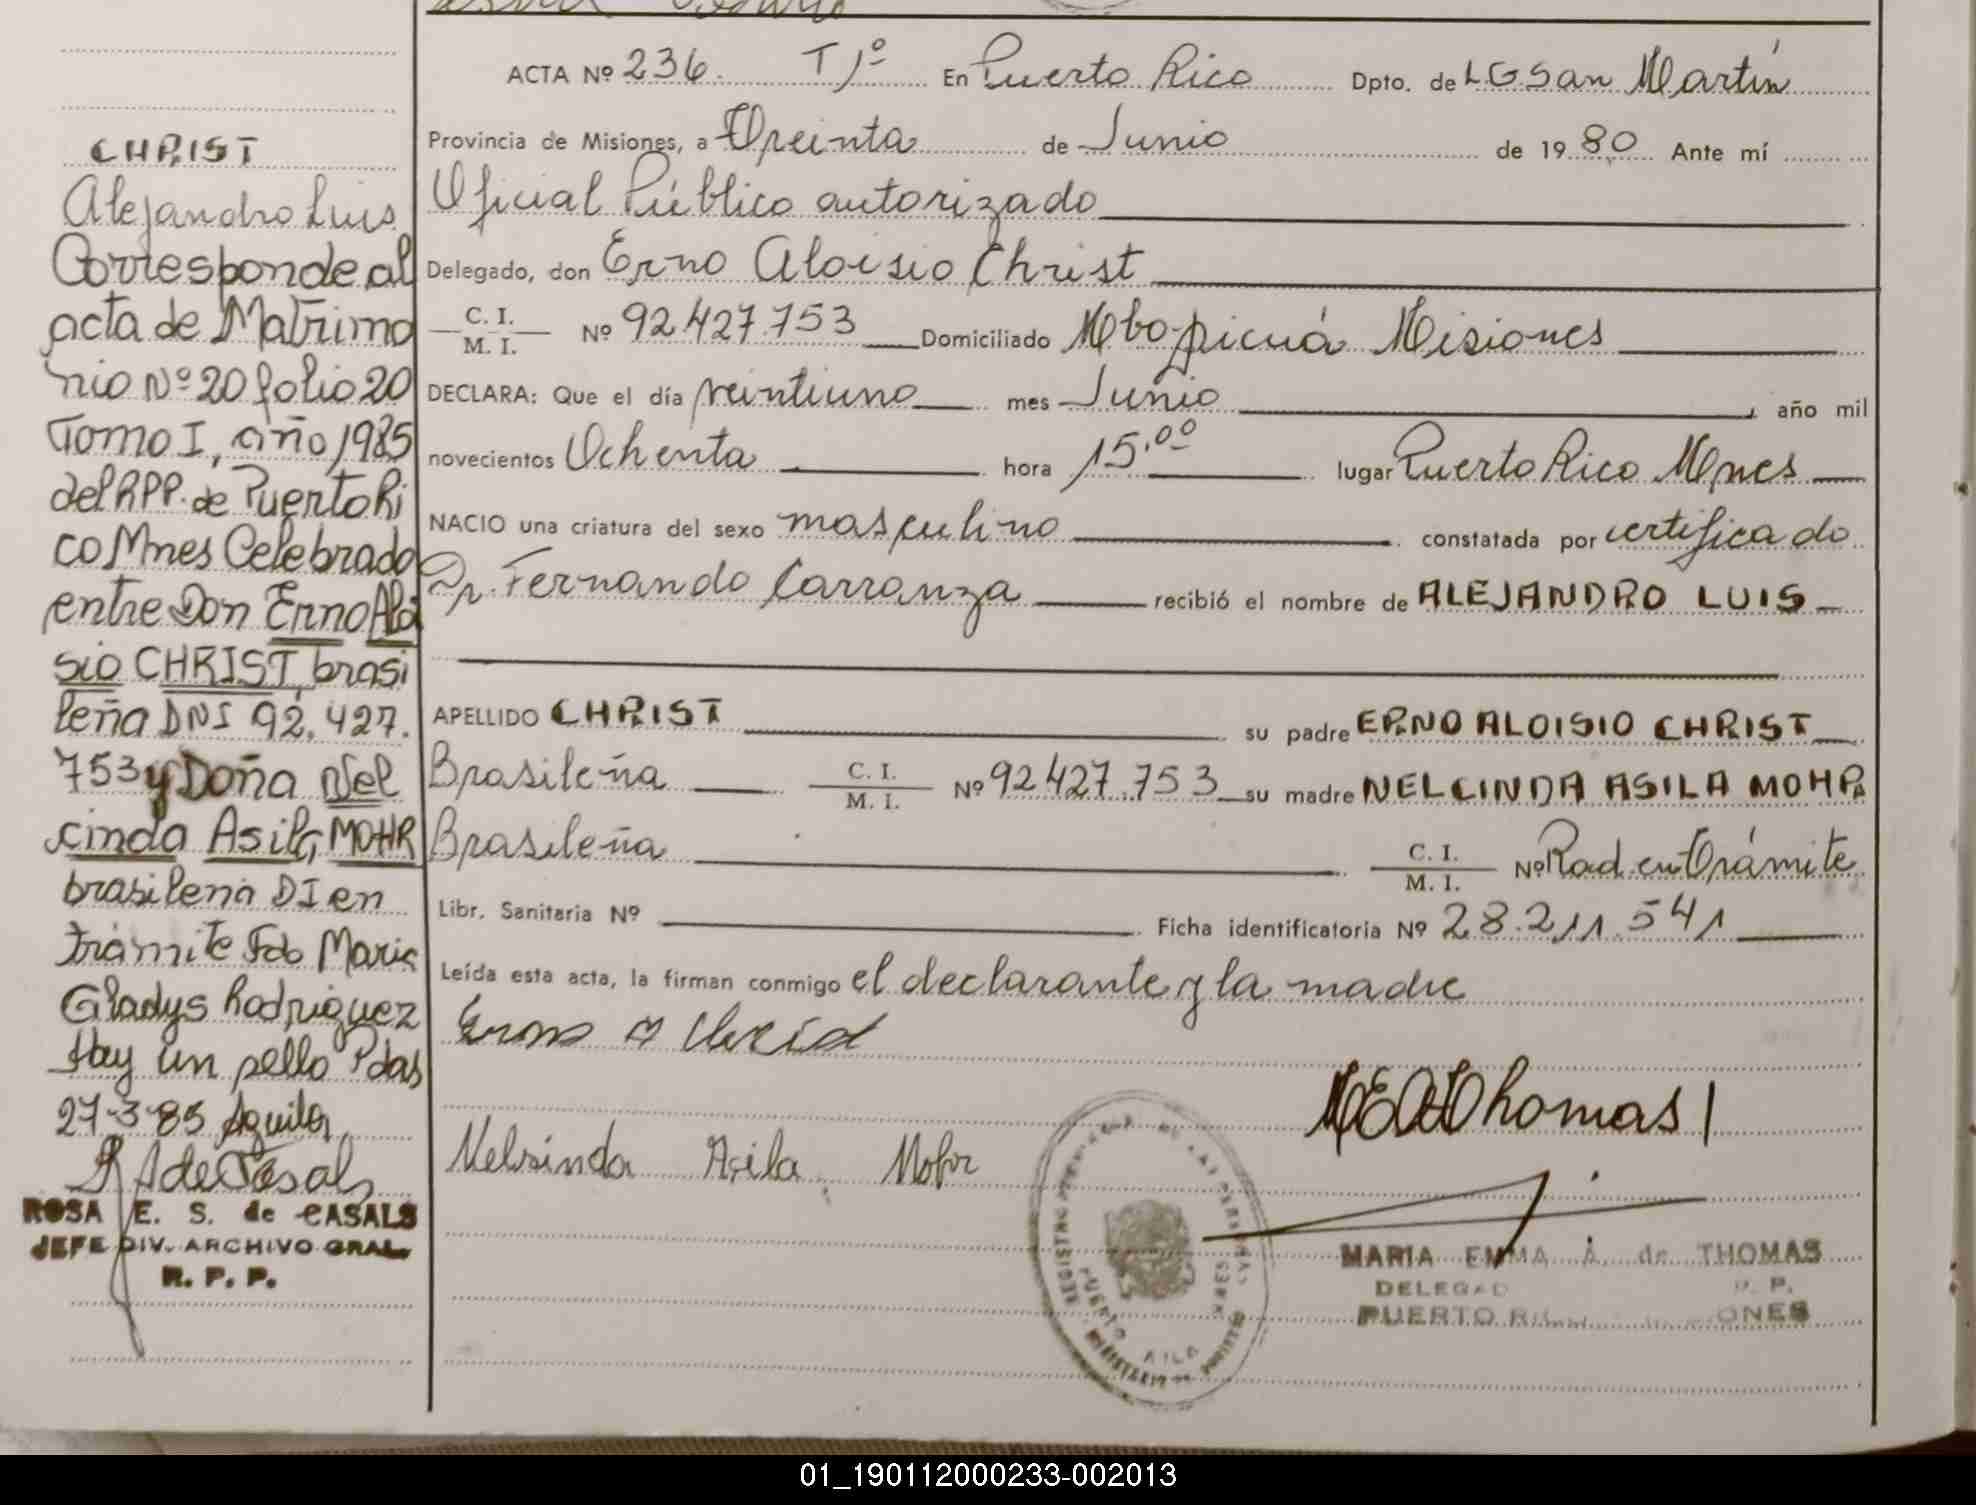 CHRIST
Alejandro Luis
Corresponde al
acta de Matrimo
nio Nº 20 folio 20
Tomo I, año 1985
del RPP. de Puerto Ri
co Mnes Celebrado
entre Don Erno Aloi
sio CHRIST, brasi
leña DNI 92.427.
753 y Doña Nel
cinda Asila MOHR
brasilena DI en
trámite Fdo Maria
Gladys Rodriguez
Hay un sello Pdas
27-3-85 Aguilar
ROSA E. S. de CASALS
JEFE DIV. ARCHIVO GRAL.
R. P. P.
ACTA Nº 236. T 1º En Puerto Rico Dpto. de L.G San Martín
Provincia de Misiones, a Treinta de Junio de 1980 Ante mí
Oficial Público autorizado
Delegado, don Erno Aloisio Christ
C. I. M. I. Nº 92.427.753 Domiciliado Mbopicuá Misiones
DECLARA: Que el día veintiuno mes Junio, año mil
novecientos Ochenta hora 15.00 lugar Puerto Rico Mnes
NACIO una criatura del sexo masculino constatada por certificado
Dr. Fernando Carranza recibió el nombre de ALEJANDRO LUIS
APELLIDO CHRIST su padre ERNO ALOISIO CHRIST
Brasileña C. I. M. I. Nº 92.427.753 su madre NELCINDA ASILA MOHR
Brasileña C. I. M. I. Nº Rad. en Trámite
Libr. Sanitaria Nº Ficha identificatoria Nº 28.211.541
Leída esta acta, la firman conmigo el declarante y la madre
Erno A Christ
Thomas
Nelsinda Asila Mohr
MARIA EMMA A. de THOMAS
DELEGAD P. P.
PUERTO RI ONES
01_190112000233-002013